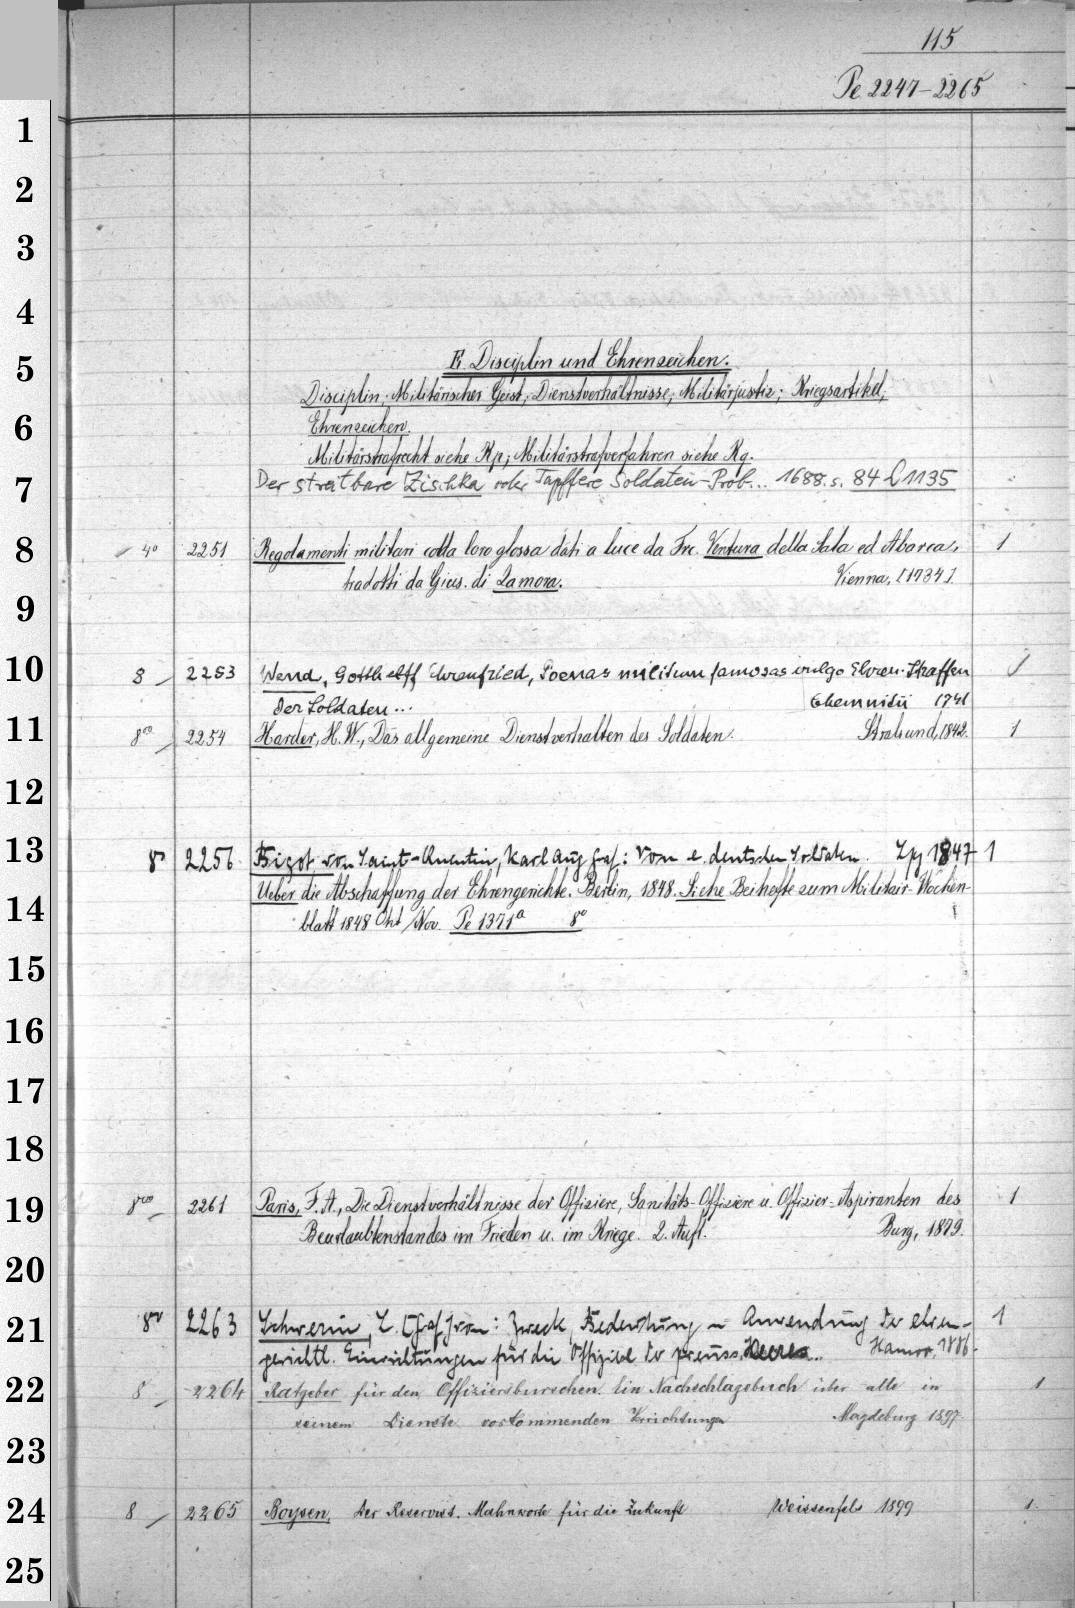 115
Pe 2247-2265
1
2
3
4
E. Disciplin und Ehrenzeichen.
5
Disciplin; Militärischer Geist; Dienstverhältnisse; Militärjustiz; Kriegsartikel;
6
Ehrenzeichen.
Militärstrafrecht siehe Kp; Militärstrafverfahren siehe Kg.
7
Der streitbare Zischka oder Tapffere Soldaten-Prob... 1688. s. 84 L 1135
8 4° 2251 Regolamenti militari colla loro glossa dati a luce da Frc. Ventura della Sala ed Abarca, 1
tradotti da Gius. di Zamora. Vienna, [1734].
9
10 8 2253 Wend, Gotthelff Ehrenfried, Poenas militum famosas vulgo Ehren-Straffen 1
der Soldaten... Chemnitii 1741
11 8vo 2254 Harder, H. W., Das allgemeine Dienstverhalten des Soldaten. Stralsund, 1842. 1
12
13 8° 2256 Bigot von Saint-Quentin, Karl Aug Graf: Vom e. deutschen Soldaten. Lpz 1847 1
Ueber die Abschaffung der Ehrengerichte. Berlin, 1848. Siehe Beihefte zum Militair-Wochen-
14
blatt 1848 Okt/Nov. Pe 1371a 8°
15
16
17
18
19 8vo 2261 Paris, F. A., Die Dienstverhältnisse der Offiziere, Sanitäts-Offiziere u. Offizier-Aspiranten des 1
Beurlaubtenstandes im Frieden u. im Kriege. 2. Aufl. Burg, 1879.
20
21 8° 2263 Schwerin, L. [Graf] von: Zweck, Bedeutung u Anwendung der ehren- 1
gerichtl. Einrichtungen für die Offiziere der preuss. Heeres.. Hannov. 1886.
22 8 2264 Ratgeber für den Offiziersburschen. Ein Nachschlagebuch über alle in 1
seinem Dienste vorkommenden Verrichtungen Magdeburg 1897.
23
24 8 2265 Boysen, Der Reservist. Mahnworte für die Zukunft Weissenfels 1899 1
25